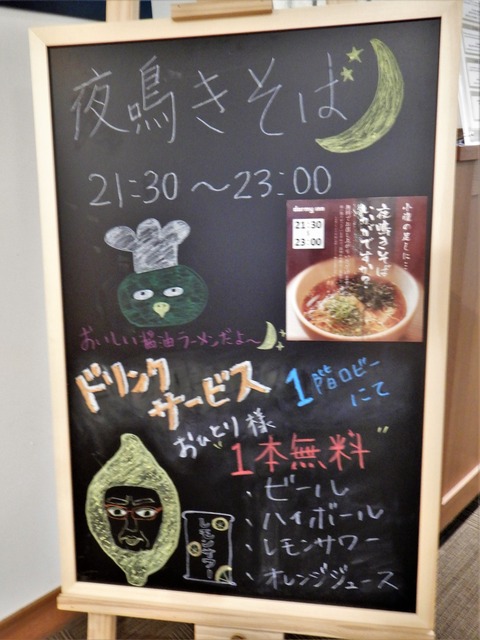 夜鳴きそば
21:30～23:00
dormy inn
21:30
23:00
小腹の足しに…
夜鳴きそば
いかがですか?
おいしい醤油ラーメンだよ～
ドリンク
サービス
1階ロビー
にて
おひとり様
1本無料
、ビール
、ハイボール
、レモンサワー
、オレンジジュース
レモンサワー